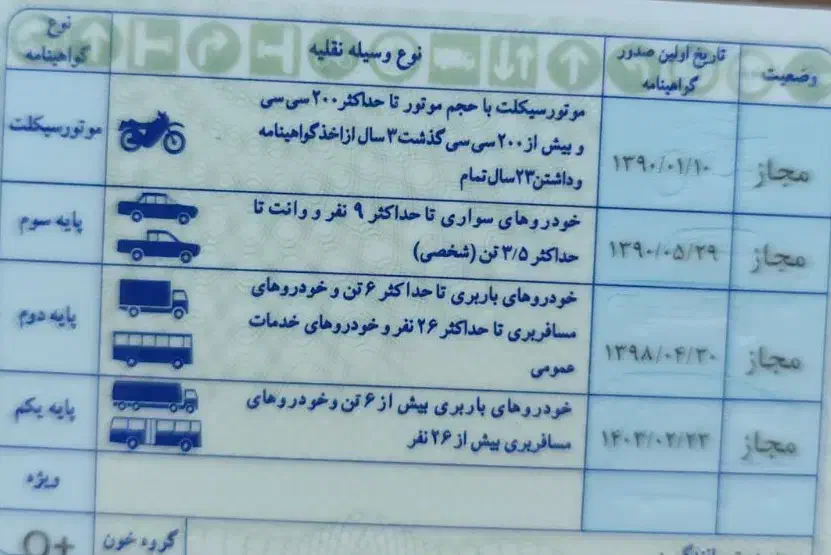 نوع گواهینامه
نوع وسیله نقلیه
تاریخ اولین صدور گواهینامه
وضعیت
موتورسیکلت
موتورسیکلت با حجم موتور تا حداکثر ۲۰۰ سی سی
و بیش از ۲۰۰ سی سی گذشت ۳ سال از اخذ گواهینامه
و داشتن ۲۳ سال تمام
۱۳۹۰/۰۱/۱۰
مجاز
پایه سوم
خودروهای سواری تا حداکثر ۹ نفر و وانت تا
حداکثر ۳/۵ تن (شخصی)
۱۳۹۰/۰۵/۲۹
مجاز
پایه دوم
خودروهای باربری تا حداکثر ۶ تن و خودروهای
مسافربری تا حداکثر ۲۶ نفر و خودروهای خدمات
عمومی
۱۳۹۸/۰۴/۳۰
مجاز
پایه یکم
خودروهای باربری بیش از ۶ تن و خودروهای
مسافربری بیش از ۲۶ نفر
۱۴۰۳/۰۲/۲۳
مجاز
ویژه
گروه خون
O+